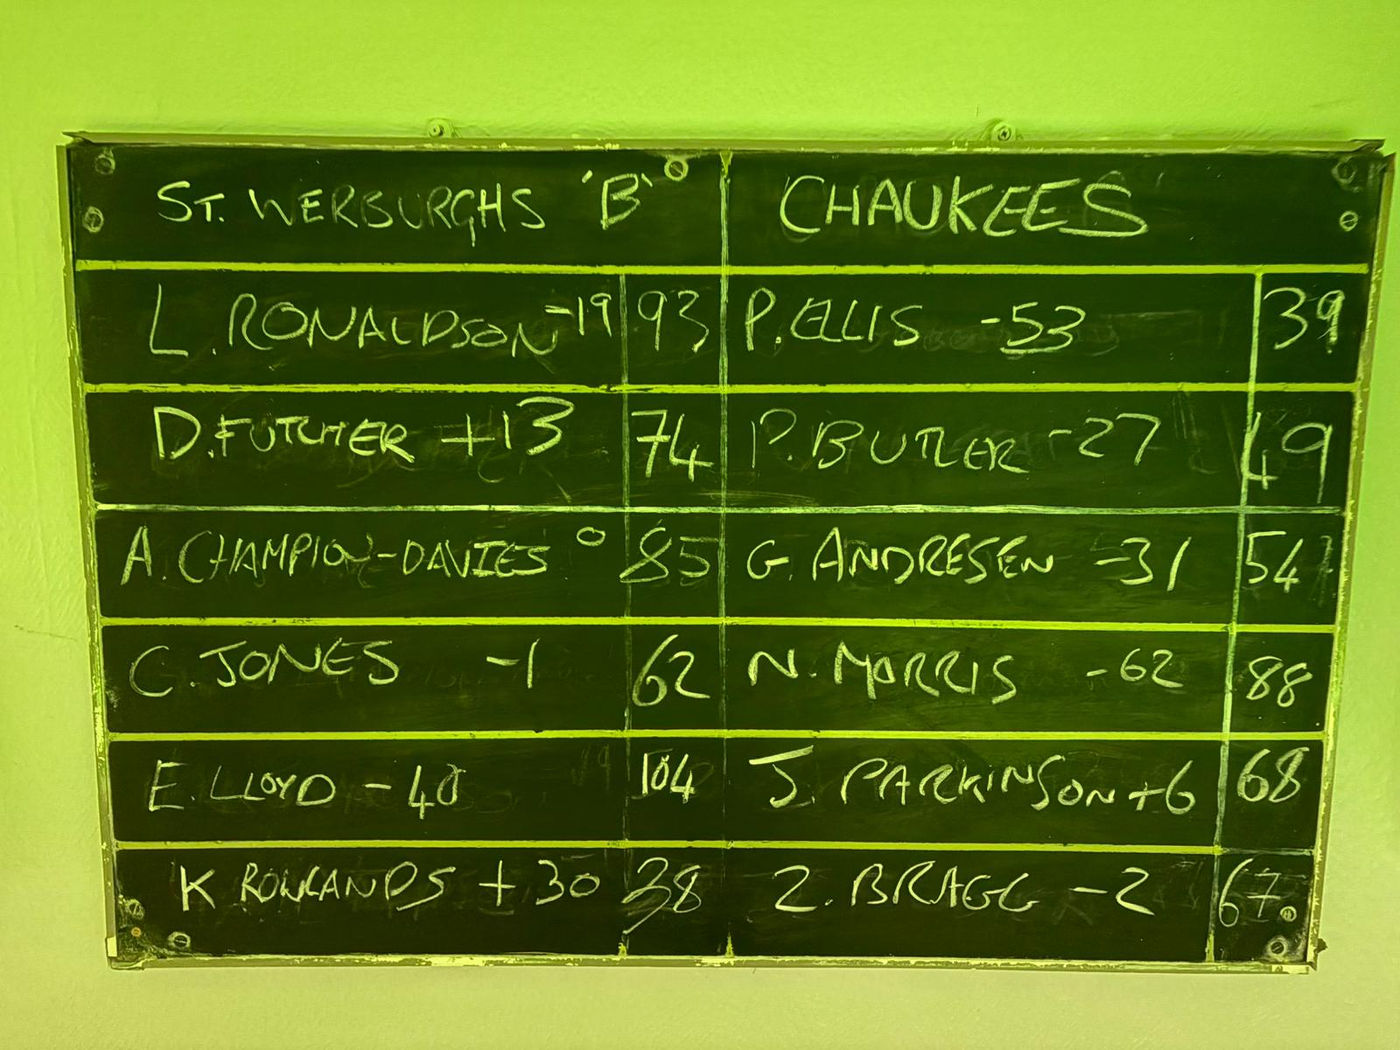 ST. WERBURGHS 'B' CHAUKEES
L. RONALDSON -19 93 P. ELLIS -53 39
D. FUTCHER +13 74 P. BUTLER -27 49
A. CHAMPION-DAVIES 0 85 G. ANDRESEN -31 54
C. JONES -1 62 N. MORRIS -62 88
E. LLOYD -40 104 J. PARKINSON +6 68
K ROWLANDS +30 38 Z. BRAGG -2 67